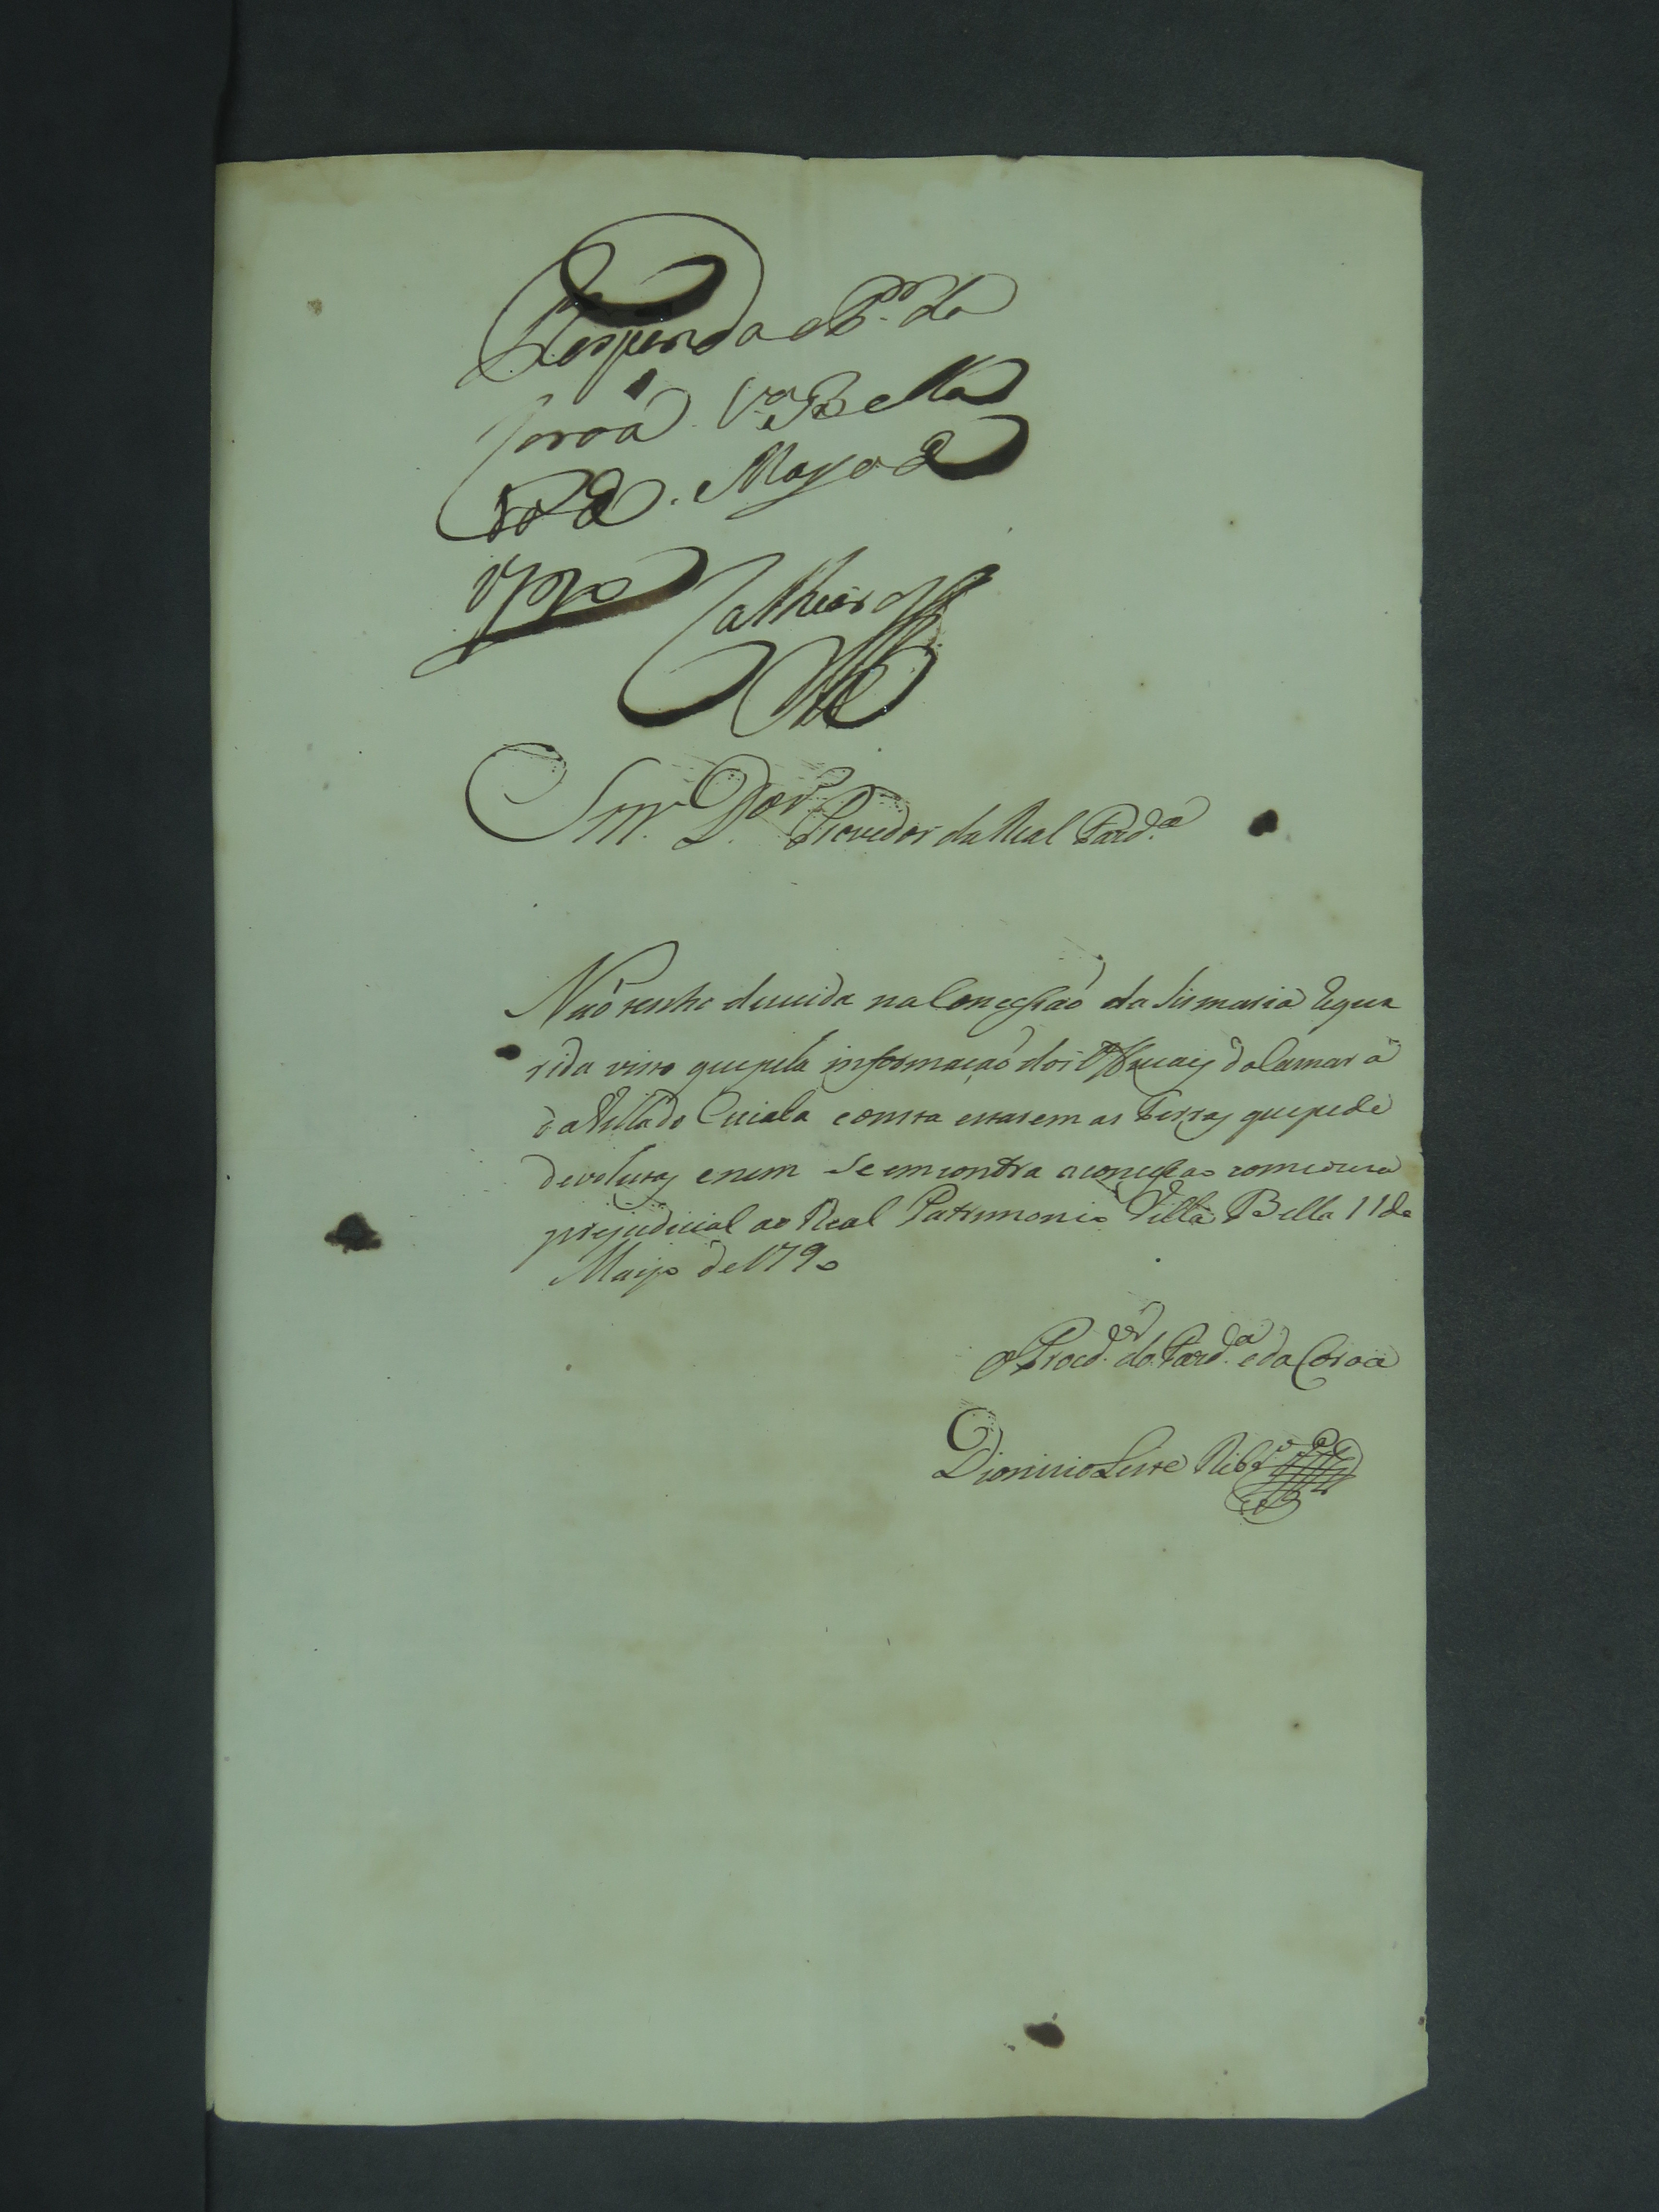 Responda o P.or da
Coroa. V.a Bella
10 de Mayo de
1790
Snr. D.or Provedor da Real Fazd.a
Naõ tenho duuida na Conceçaõ da Sismaria Reque
rida visto que pela informaçaõ dos Officiaes da Camara
da Villa do Cuiaba consta estarem as Terras que pede
devolutas e nem se emcontra a conceçao com couza
prejudicial ao Real Patrimonio Villa Bella 11 de
Mayo de 1790
O Procd.or da Fazd.a e da Coroa
Dionizio Leite Ribr.o